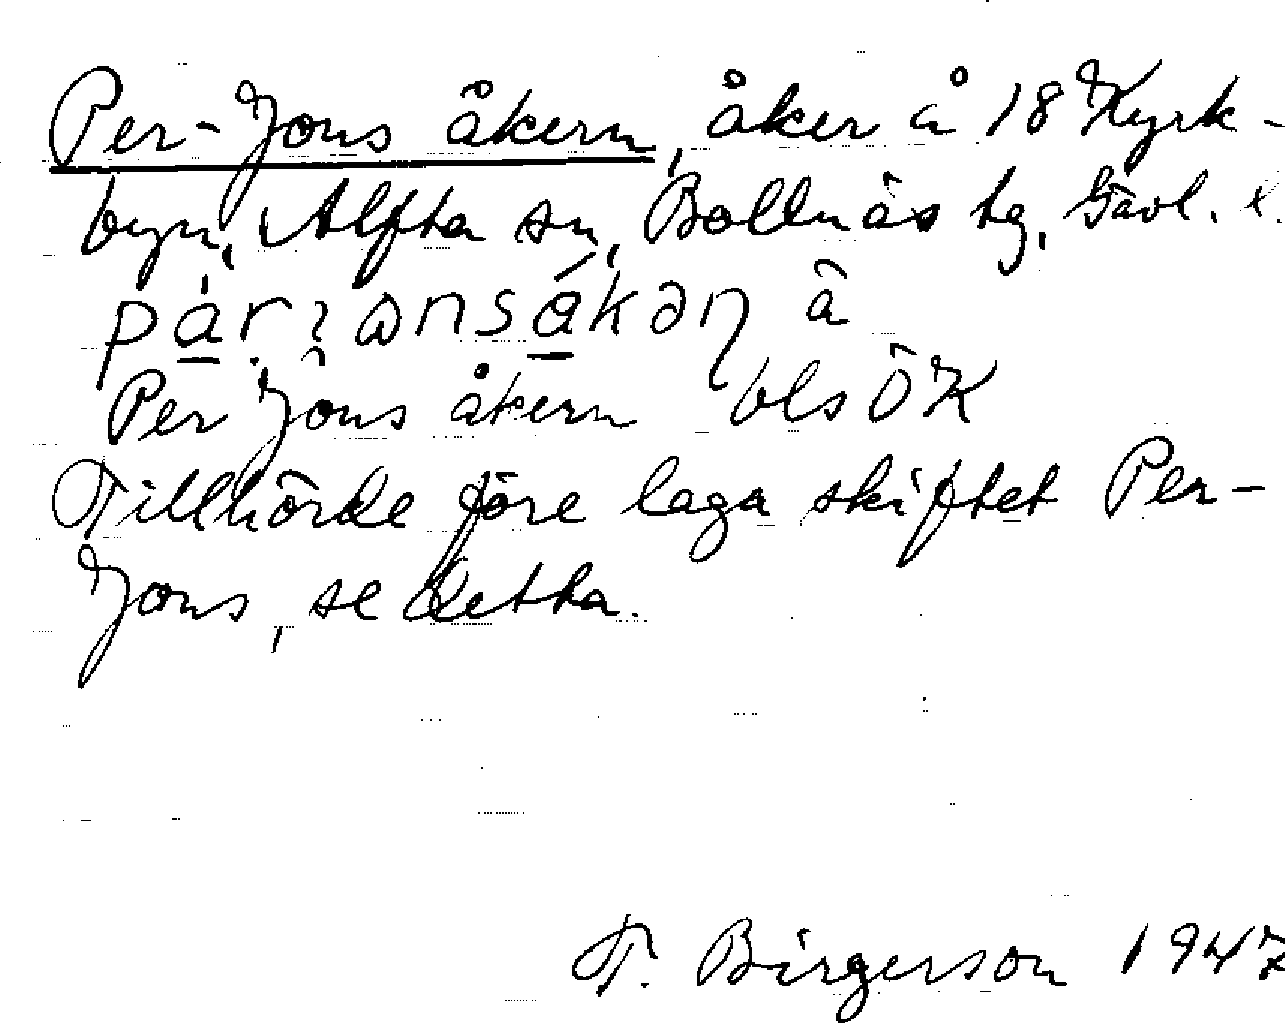 Per-Jons åkern, åker å 18 Kyrk-
byn, Alfta sn, Bollnäs tg, Gävl. l.
å
Per Jöns åkern bls ÖK
Tillhörde före laga skiftet Per-
Jons, se detta.
T. Birgerson 1947